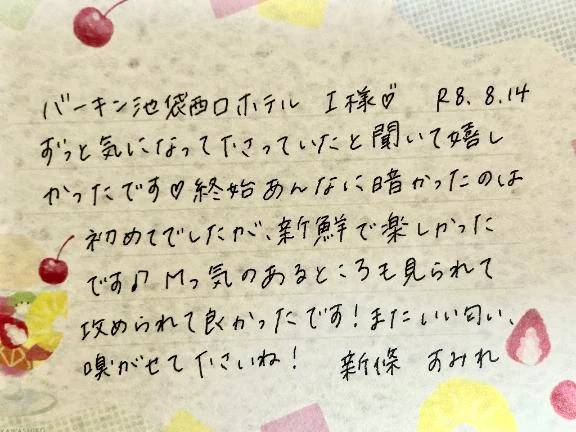 バーキン池袋西口ホテル I様♡ R8.8.14
ずっと気になって下さっていたと聞いて嬉し
かったです♡終始あんなに暗かったのは
初めてでしたが、新鮮で楽しかった
です♪Mっ気のあるところも見られて
攻められて良かったです！またいい匂い、
嗅がせて下さいね！ 新條 すみれ
KAWASHIRO